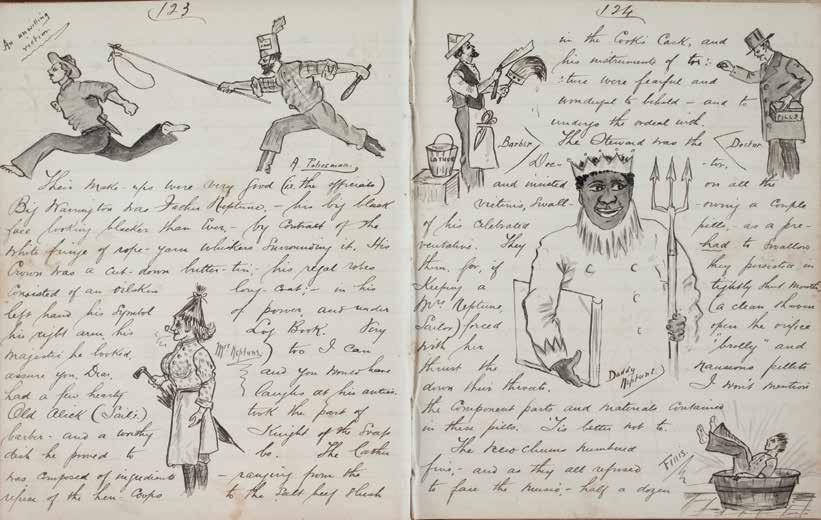 123
An unwilling victim
A Policeman
Their make-ups were very good (ie the officials)
Big Warrington was Father Neptune, - his big black
face looking blacker than ever - by Contrast of the
white fringe of rope-yarn whiskers surrounding it. His
Crown was a cut-down butter-tin; his regal robes
consisted of an oilskin long-coat; - in his
left hand his Symbol of power, and under
his right arm his Log Book. Very
majestic he looked, too I can
assure you, Dear, and you would have
had a few hearty laughs at his antics.
Mrs Neptune
Old Alick (Sails) took the part of
barber - and a worthy Knight of the Soaps
he proved to be. The Lather
was composed of ingredients - ranging from the
refuse of the hen-coops to the salt beef slush
124
in the Cook's Cask, and
his instruments of tor:
:ture were fearful and
wonderful to behold - and to
undergo the ordeal with.
LATHER
Barber
PILLS
Doctor
The Steward was the
Doc- -tor,
and insisted on all the
victims, Swall- -owing a couple
of his celebrated pills, - as a pre-
ventative. They had to swallow
them, for, if they persisted in
Keeping a tightly shut mouth
Mrs Neptune, (a clean shaven
Sailor) forced open the orifice
with her "brolly" and
thrust the nauseous pellets
down their throats. I won't mention
Daddy Neptune
the component parts and materials contained
in these pills. Tis better not to.
The new chums numbered
five, - and as they all refused
to face the music, - half a dozen
FINIS.